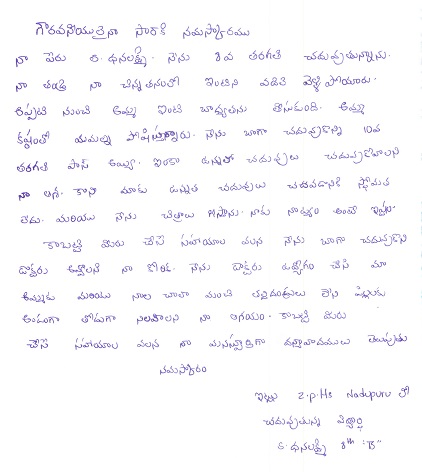 గౌరవనీయులైన సారికి నమస్కారము
నా పేరు ర. ధనలక్ష్మి. నేను 8వ తరగతి చదువుతున్నాను.
నా తండ్రి నా చిన్నతనంలో ఇంటిని వదిలి వెళ్లి పోయారు.
అప్పటి నుంచి అమ్మ ఇంటి బాధ్యతను తీసుకుంది. అమ్మ
కష్టంతో మమల్ని పోషిస్తున్నారు. నేను బాగా చదువుకొన్ని 10వ
తరగతి పాస్ అయ్యి. ఇంకా ఉన్నతో చదువులు చదువుకోవాలని
నా ఆశ. కాని మాకు ఉన్నత చదువులు చదవడానికి స్తోమత
లేదు. మరియు నేను చిత్రాలు గీస్తాను. నాకు నాట్యం అంటే ఇష్టం.
కాబట్టి మీరు చేసే సహాయాల వలన నేను బాగా చదువుకొని
డాక్టరు అవ్వాలని నా కోరిక. నేను డాక్టరు ఉద్యోగం చేసి మా
అమ్మకు మరియు నాల చాలా మంది తల్లిదండ్రులు లేని పిల్లలకు
అండగా తోడుగా నిలవాలని నా ఆశయం. కాబట్టి మీరు
చేసే సహాయాల వలన నా మనస్ఫూర్తిగా ధన్యవాదములు తెలుపుతు
నమస్కారం
ఇట్లు Z.P.HS Nadupuru లో
చదువుతున్న విద్యార్థి
ర. ధనలక్ష్మి 8th "B"